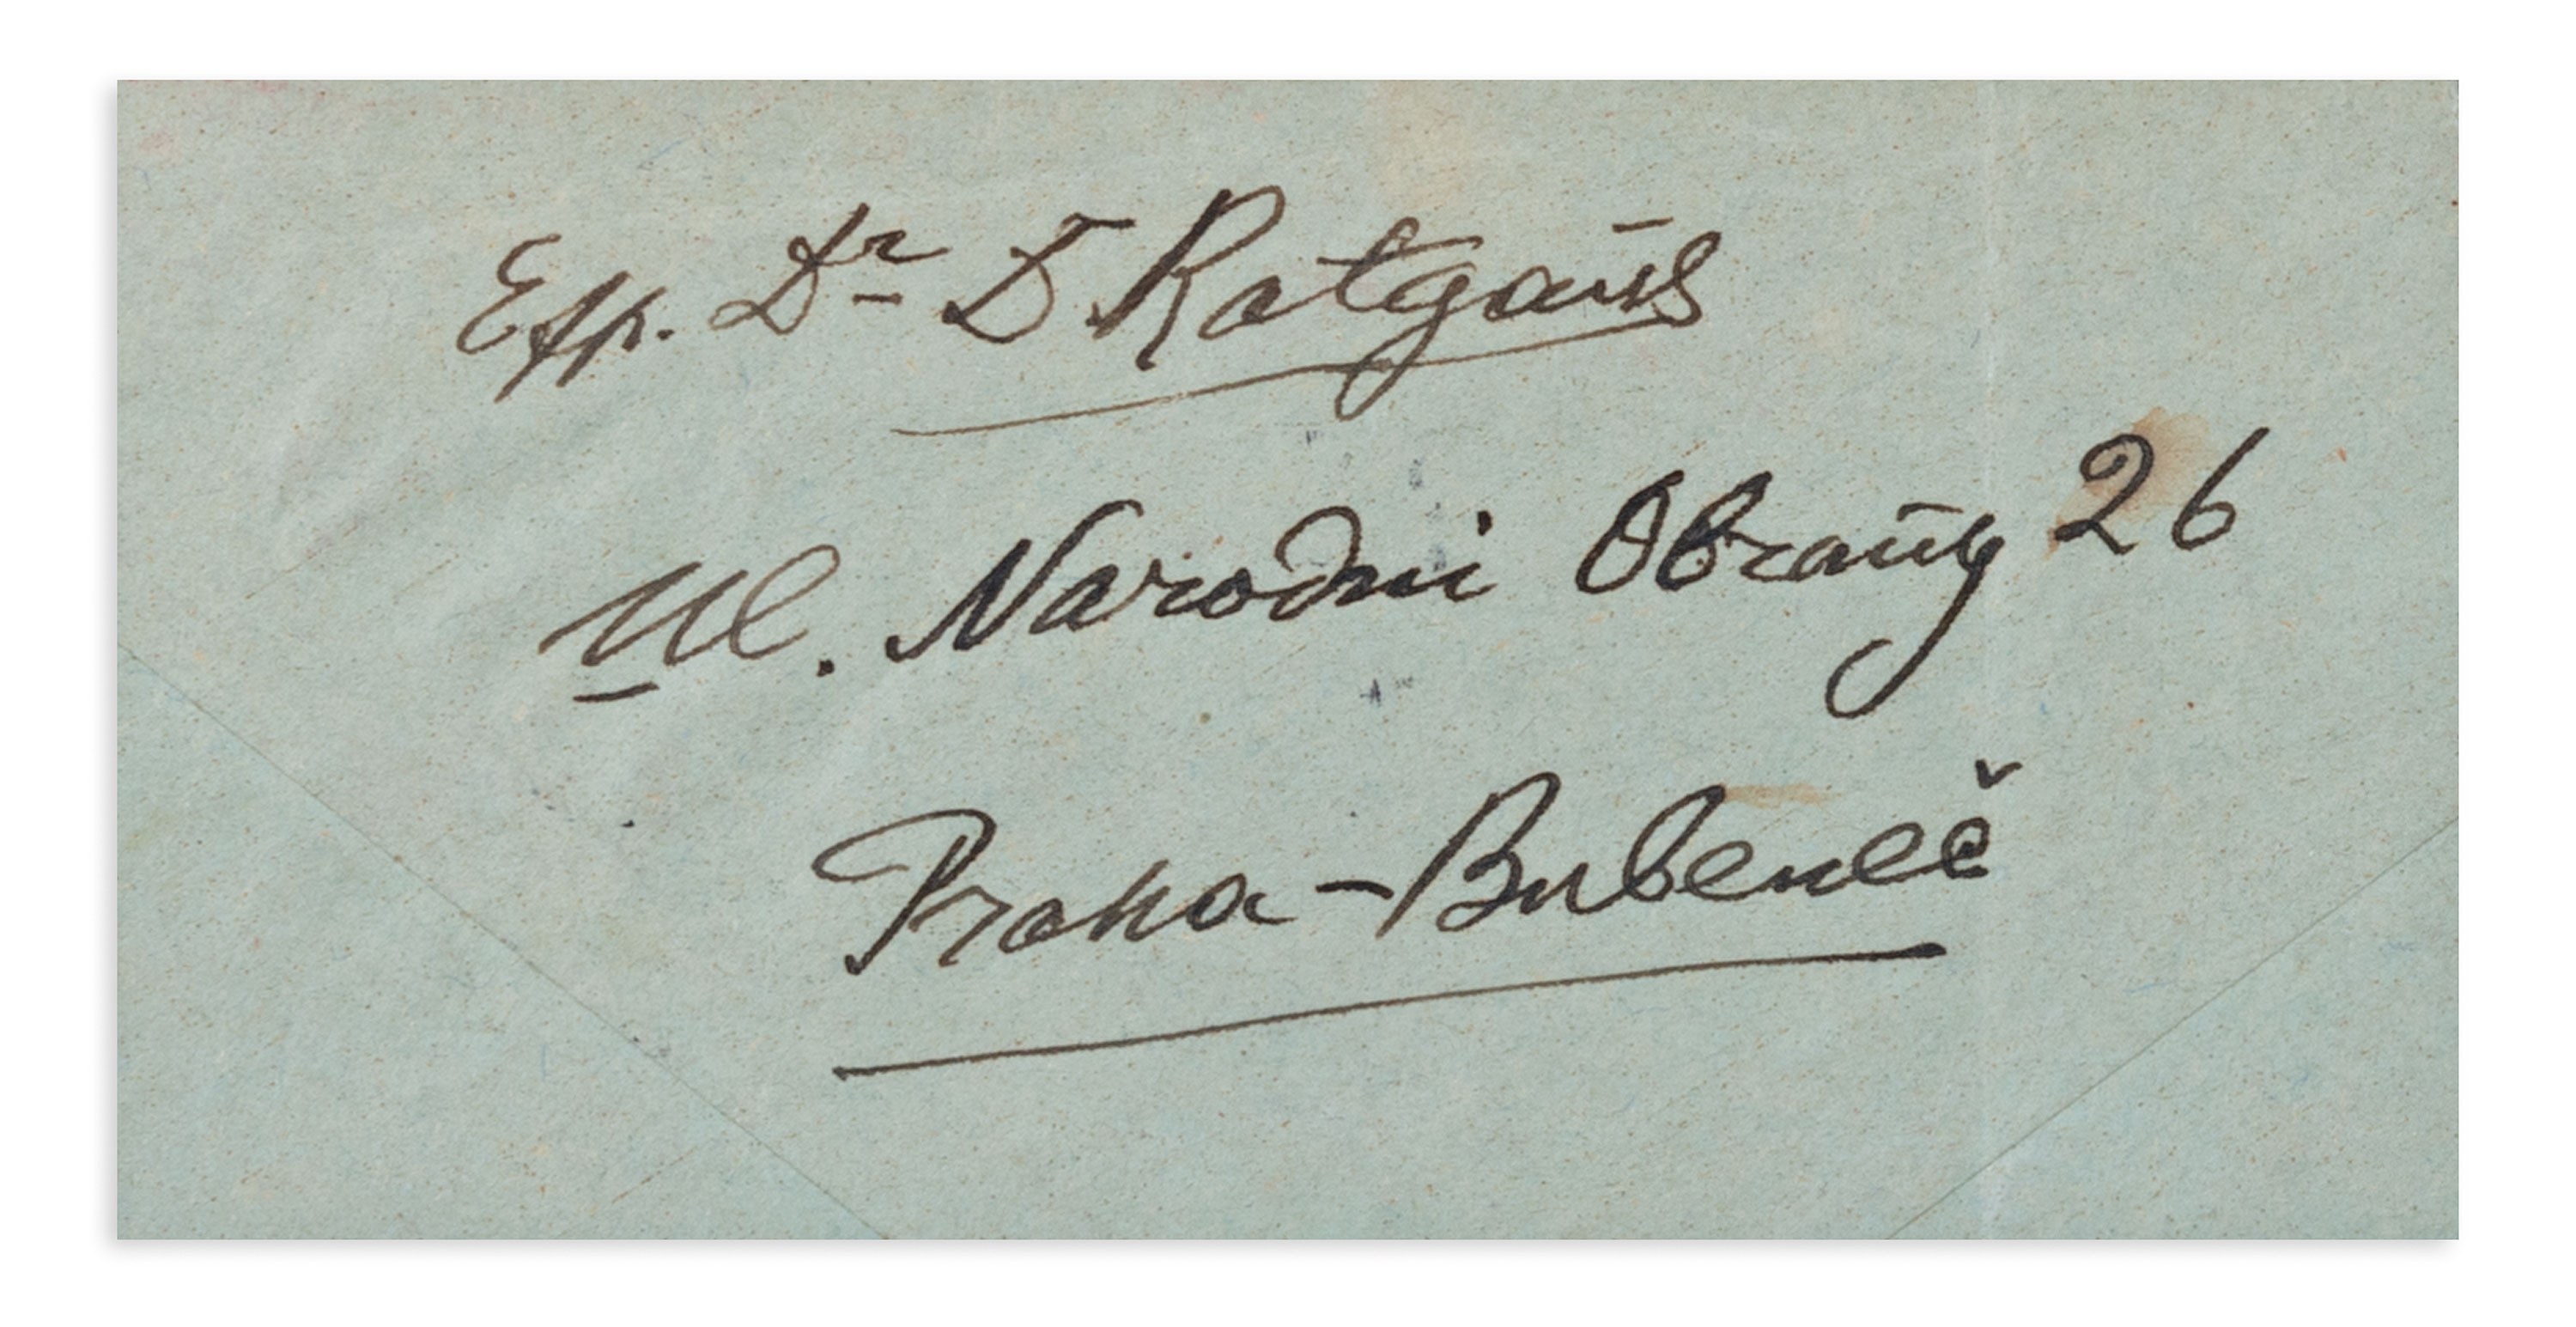 Exp. Dr D Ratgaus
Ul. Narodni Obrany 26
Praha - Bubeneč